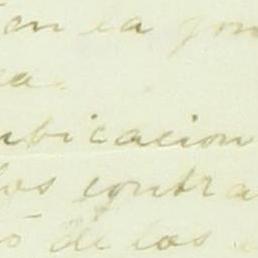 en la
ubicacion
los contra
ó de los